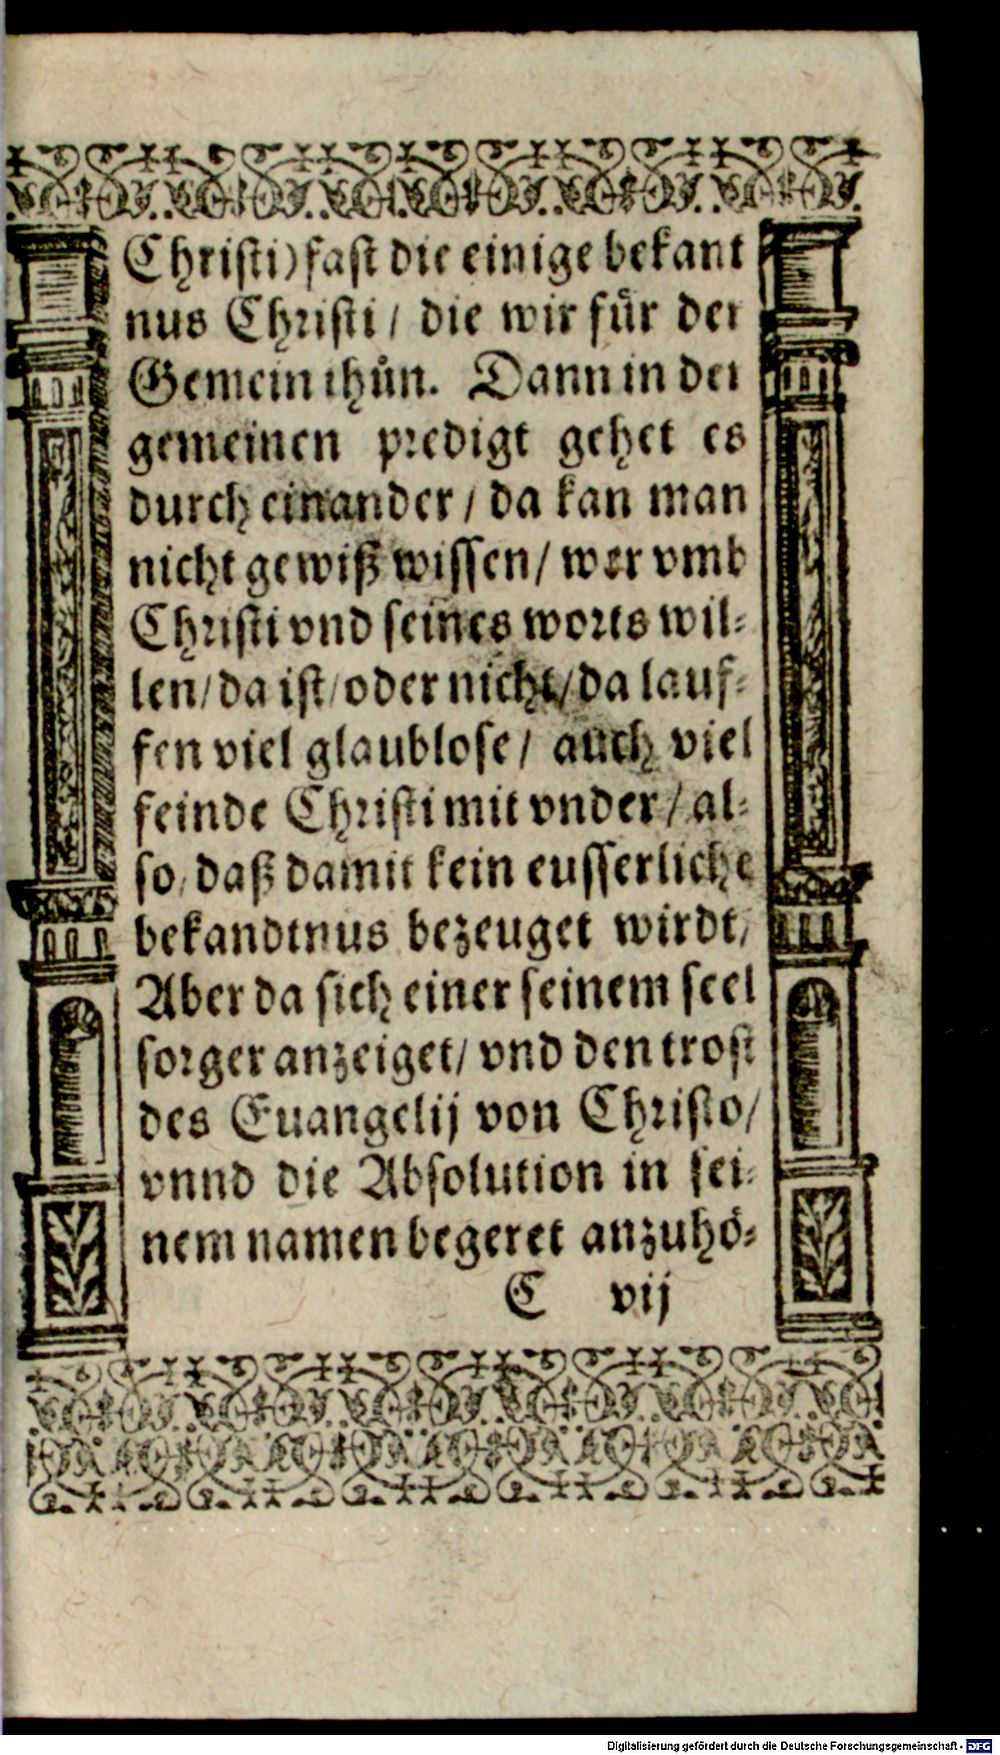 Christi) fast die einige bekant
nus Christi / die wir für der
Gemein thůn. Dann in der
gemeinen predigt gehet es
durch einander / da kan man
nicht gewiß wissen / wer vmb
Christi vnd seines worts wil-
len / da ist / oder nicht / da lauf-
fen viel glaublose / auch viel
feinde Christi mit vnder / al-
so / daß damit kein eusserliche
bekandtnus bezeuget wirdt /
Aber da sich einer seinem seel
sorger anzeiget / vnd den trost
des Euangelij von Christo /
vnnd die Absolution in sei-
nem namen begeret anzuhö-
C vij
Digitalisierung gefördert durch die Deutsche Forschungsgemeinschaft - DFG